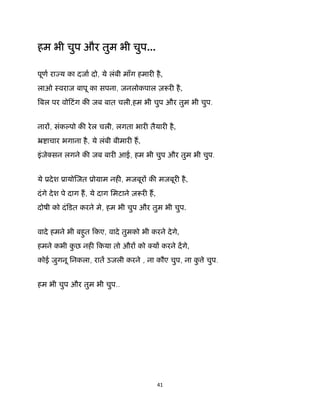 हम भी चुप और तुम भी चुप...
पूर्ण राज्य का दर्जा दो, ये लंबी माँग हमारी है,
लाओ स्वराज बापू का सपना, जनलोकपाल जरूरी है,
बिल पर वोटिंग की जब बात चली,हम भी चुप और तुम भी चुप.
नारों, संकल्पो की रेल चली, लगता भारी तैयारी है,
भ्रष्टाचार भगाना है, ये लंबी बीमारी हैं,
इंजेक्सन लगने की जब बारी आई, हम भी चुप और तुम भी चुप.
ये प्रदेश प्रायोज्जित प्रोग्राम नही, मजबूरों की मजबूरी है,
दंगे देश पे दाग हैं, ये दाग मिटाने जरूरी हैं,
दोषी को दंडित करने मे, हम भी चुप और तुम भी चुप.
वादे हमने भी बहुत किए, वादे तुमको भी करने देगे,
हमने कभी कुछ नही किया तो औरों को क्यों करने देंगे,
कोई जुगनू निकला, रातें उजली करने , ना कौए चुप, ना कुत्ते चुप.
हम भी चुप और तुम भी चुप..
41